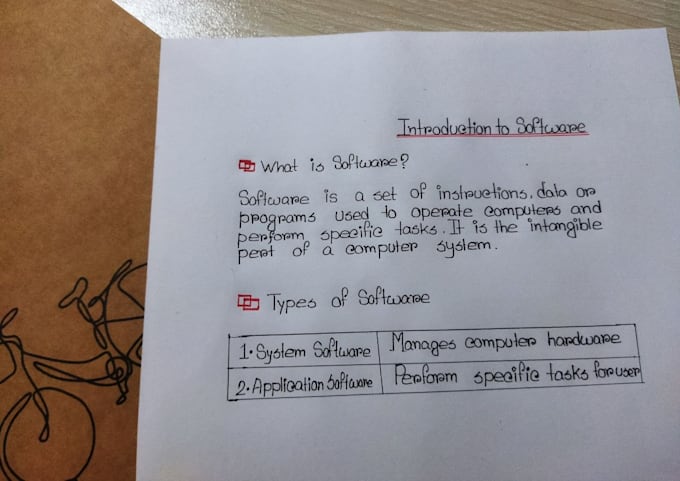 Introduction to Software
What is Software?
Software is a set of instructions, data or
programs used to operate computers and
perform specific tasks. It is the intangible
pert of a computer system.
Types of Software
1. System Software Manages computer hardware
2. Application Software Perform specific tasks for user